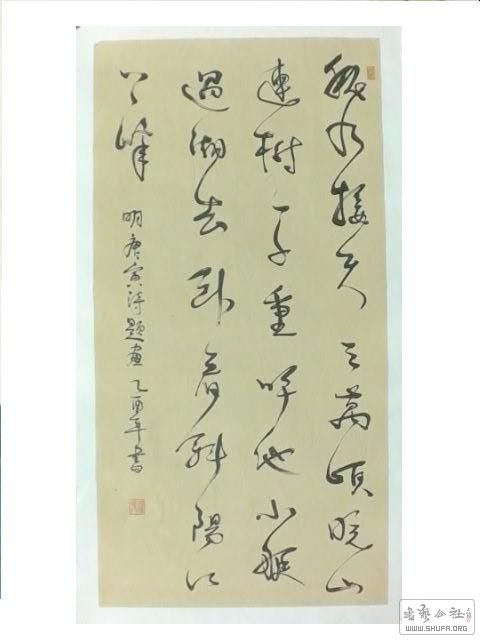 秋水接天三萬頃晚山
連樹一千重呼他小艇
過湖去卧看斜陽江
上峰 明唐寅詩題畫 乙酉年書
WWW.SHUFA.ORG